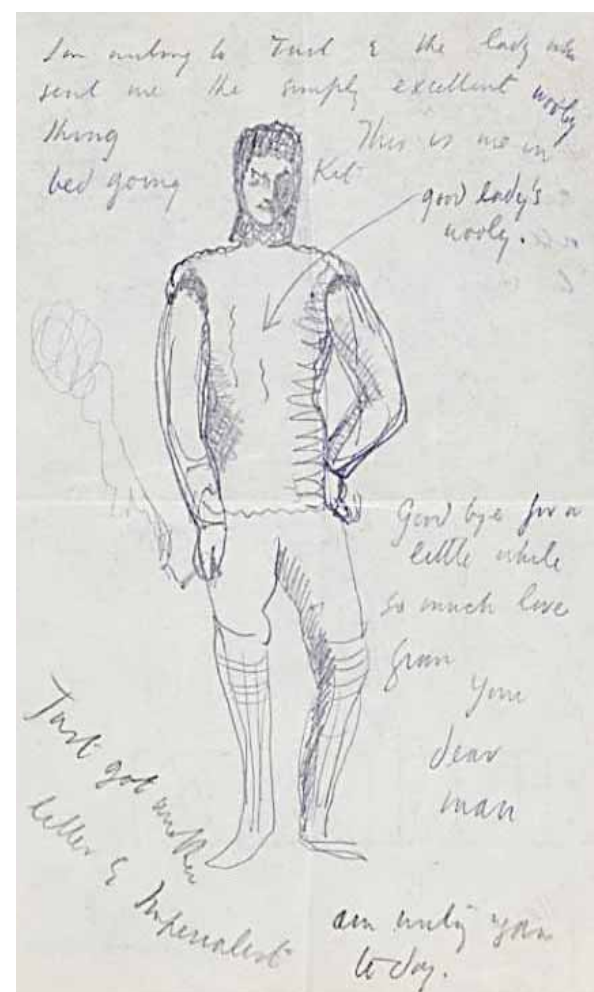 I'm writing to Turl & the lady who
sent me the simply excellent wooly
thing This is me in
bed going Kit
good lady's
wooly.
Good bye for a
little while
so much love
from
your
dear
man
Just got another
letter & Imperialist
am writing you
to day.